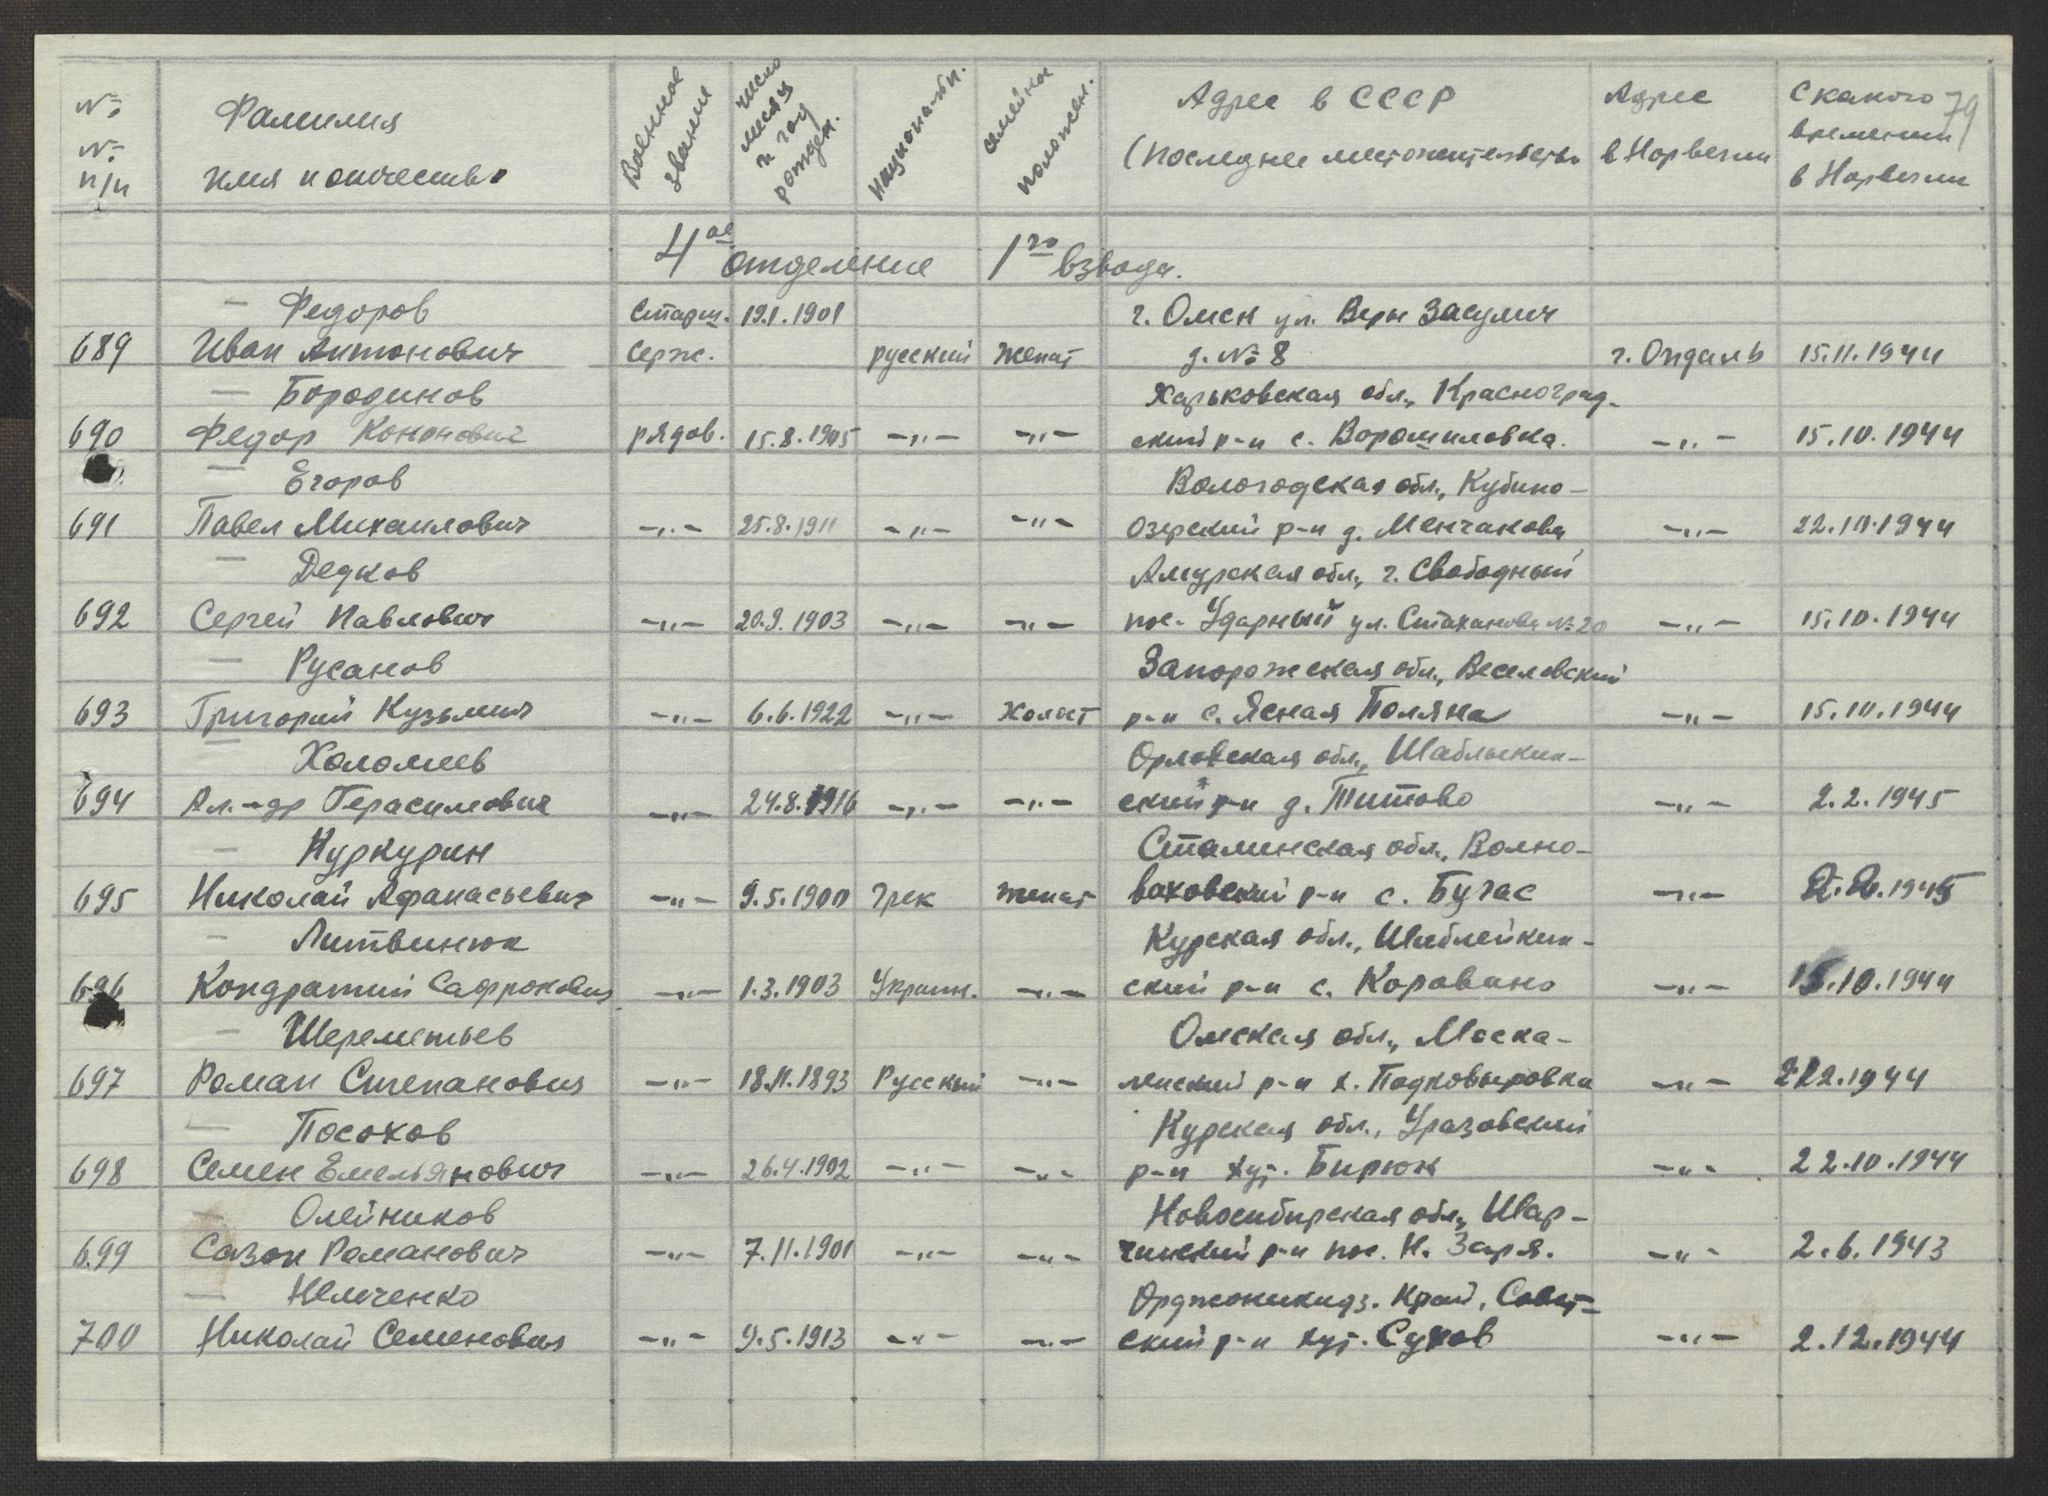 № № п/п | Фамилия имя и отчество | Военное звание | число месяц и год рожден. | национальн. | семейн. положен. | Адрес в СССР (последнее местожительств. | Адрес в Норвегии | С какого времени в Норвегии
79
4ое отделение 1го взвода.
— Федоров | Старш. | 19.1.1901 | г. Омск ул. Веры Засулич
689 | Иван Антонович | серж. | русский | женат | д. № 8 | г. Опдаль | 15.11.1944
— Бородинов | Харьковская обл., Красноград-
690 | Федор Кононович | рядов. | 15.8.1905 | —„— | —„— | ский р-н с. Ворошиловка. | —„— | 15.10.1944
— Егоров | Вологодская обл., Кубино-
691 | Павел Михаилович | —„— | 25.8.1911 | —„— | —„— | озерский р-н д. Менчаково | —„— | 22.10.1944
— Дедков | Амурская обл., г. Свободный
692 | Сергей Павлович | —„— | 20.9.1903 | —„— | —„— | пос. Ударный ул. Стаханова № 20 | —„— | 15.10.1944
— Русанов | Запорожская обл., Веселовский
693 | Григорий Кузьмич | —„— | 6.6.1922 | —„— | холост | р-н с. Ясная Поляна | —„— | 15.10.1944
— Холомеев | Орловская обл., Шаблыкин-
694 | Ал-др Герасимович | —„— | 24.8.1916 | —„— | —„— | ский р-н д. Титово | —„— | 2.2.1945
— Куркурин | Сталинская обл., Волно-
695 | Николай Афанасьевич | —„— | 9.5.1900 | грек | женат | ваховский р-н с. Бугас | —„— | 2.2.1945
— Литвинюк | Курская обл., Шаблейкин-
696 | Кондратий Сафронович | —„— | 1.3.1903 | Украин. | —„— | ский р-н с. Коровано | —„— | 15.10.1944
— Шереметьев | Омская обл., Моска-
697 | Роман Степанович | —„— | 18.11.1893 | Русский | —„— | ленский р-н х. Подковыровка | —„— | 2.12.1944
— Посохов | Курская обл., Уразовский
698 | Семен Емельянович | —„— | 26.4.1902 | —„— | —„— | р-н хут. Бирюк | —„— | 22.10.1944
— Олейников | Новосибирская обл., Шар-
699 | Сазон Романович | —„— | 7.11.1901 | —„— | —„— | чинский р-н пос. Н. Заря. | —„— | 2.6.1943
— Немченко | Орджоникидз. Край, Совет-
700 | Николай Семенович | —„— | 9.5.1913 | —„— | —„— | ский р-н хут. Сухов | —„— | 2.12.1944